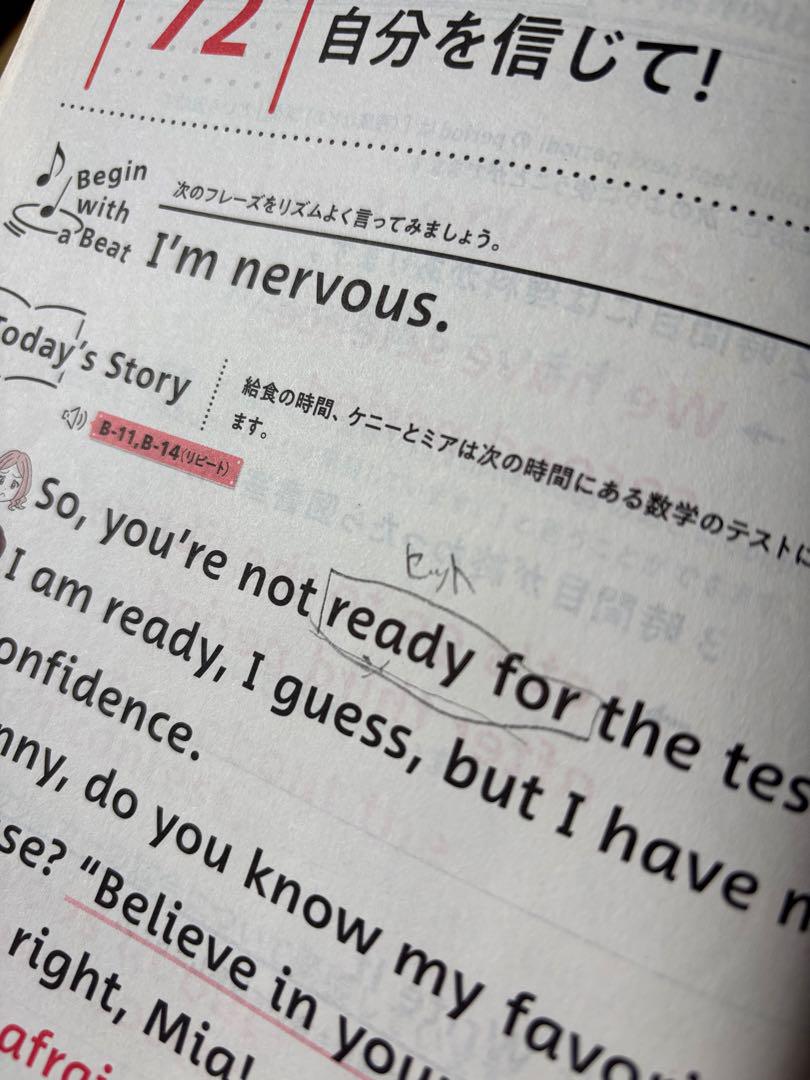 72
自分を信じて!
Begin
with
a Beat
次のフレーズをリズムよく言ってみましょう。
I'm nervous.
Today's Story
給食の時間、ケニーとミアは次の時間にある数学のテストに
ます。
B-11,B-14(リピート)
セット
So, you're not ready for the tes
I am ready, I guess, but I have n
onfidence.
nny, do you know my favori
se? "Believe in your
right, Mia!
afrai